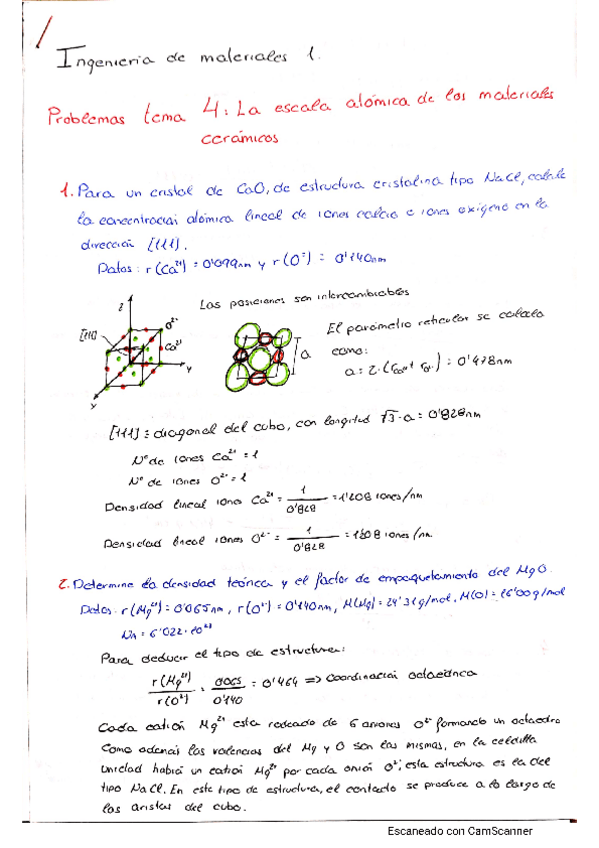 Ingeniería de materiales 1.
Problemas tema 4: La escala atómica de los materiales
cerámicos
1. Para un cristal de CaO, de estructura cristalina tipo NaCl, calcule
la concentración atómica lineal de iones calcio e iones oxígeno en la
dirección [111].
Datos: r(Ca²⁺) = 0'099nm y r(O⁼) = 0'140nm
Las posiciones son intercambiables
z
[111]
O²⁻
Ca²⁺
y
a
El parámetro reticular se calcula
como:
a = 2·(r + r) = 0'478nm
[111] = diagonal del cubo, con longitud √3·a = 0'828nm
Nº de iones Ca²⁺ = 1
Nº de iones O²⁻ = 1
Densidad lineal iono Ca²⁺ = 1/0'828 = 1'208 iones/nm
Densidad lineal iones O²⁻ = 1/0'828 = 1'208 iones/nm
2. Determine la densidad teórica y el factor de empaquetamiento del MgO.
Datos: r(Mg²⁺) = 0'065nm, r(O²⁻) = 0'140nm, M(Mg) = 24'31g/mol, M(O) = 16'00g/mol
NA = 6'022·10²³
Para deducir el tipo de estructura:
r(Mg²⁺)/r(O²⁻) = 0'065/0'140 = 0'464 => Coordinación octaédrica
Cada catión Mg²⁺ está rodeado de 6 aniones O²⁻ formando un octaedro
Como además las valencias del Mg y O son las mismas, en la celdilla
unidad habrá un catión Mg²⁺ por cada anión O²⁻, esta estructura es la del
tipo NaCl. En este tipo de estructura, el contacto se produce a lo largo de
las aristas del cubo.
Escaneado con CamScanner